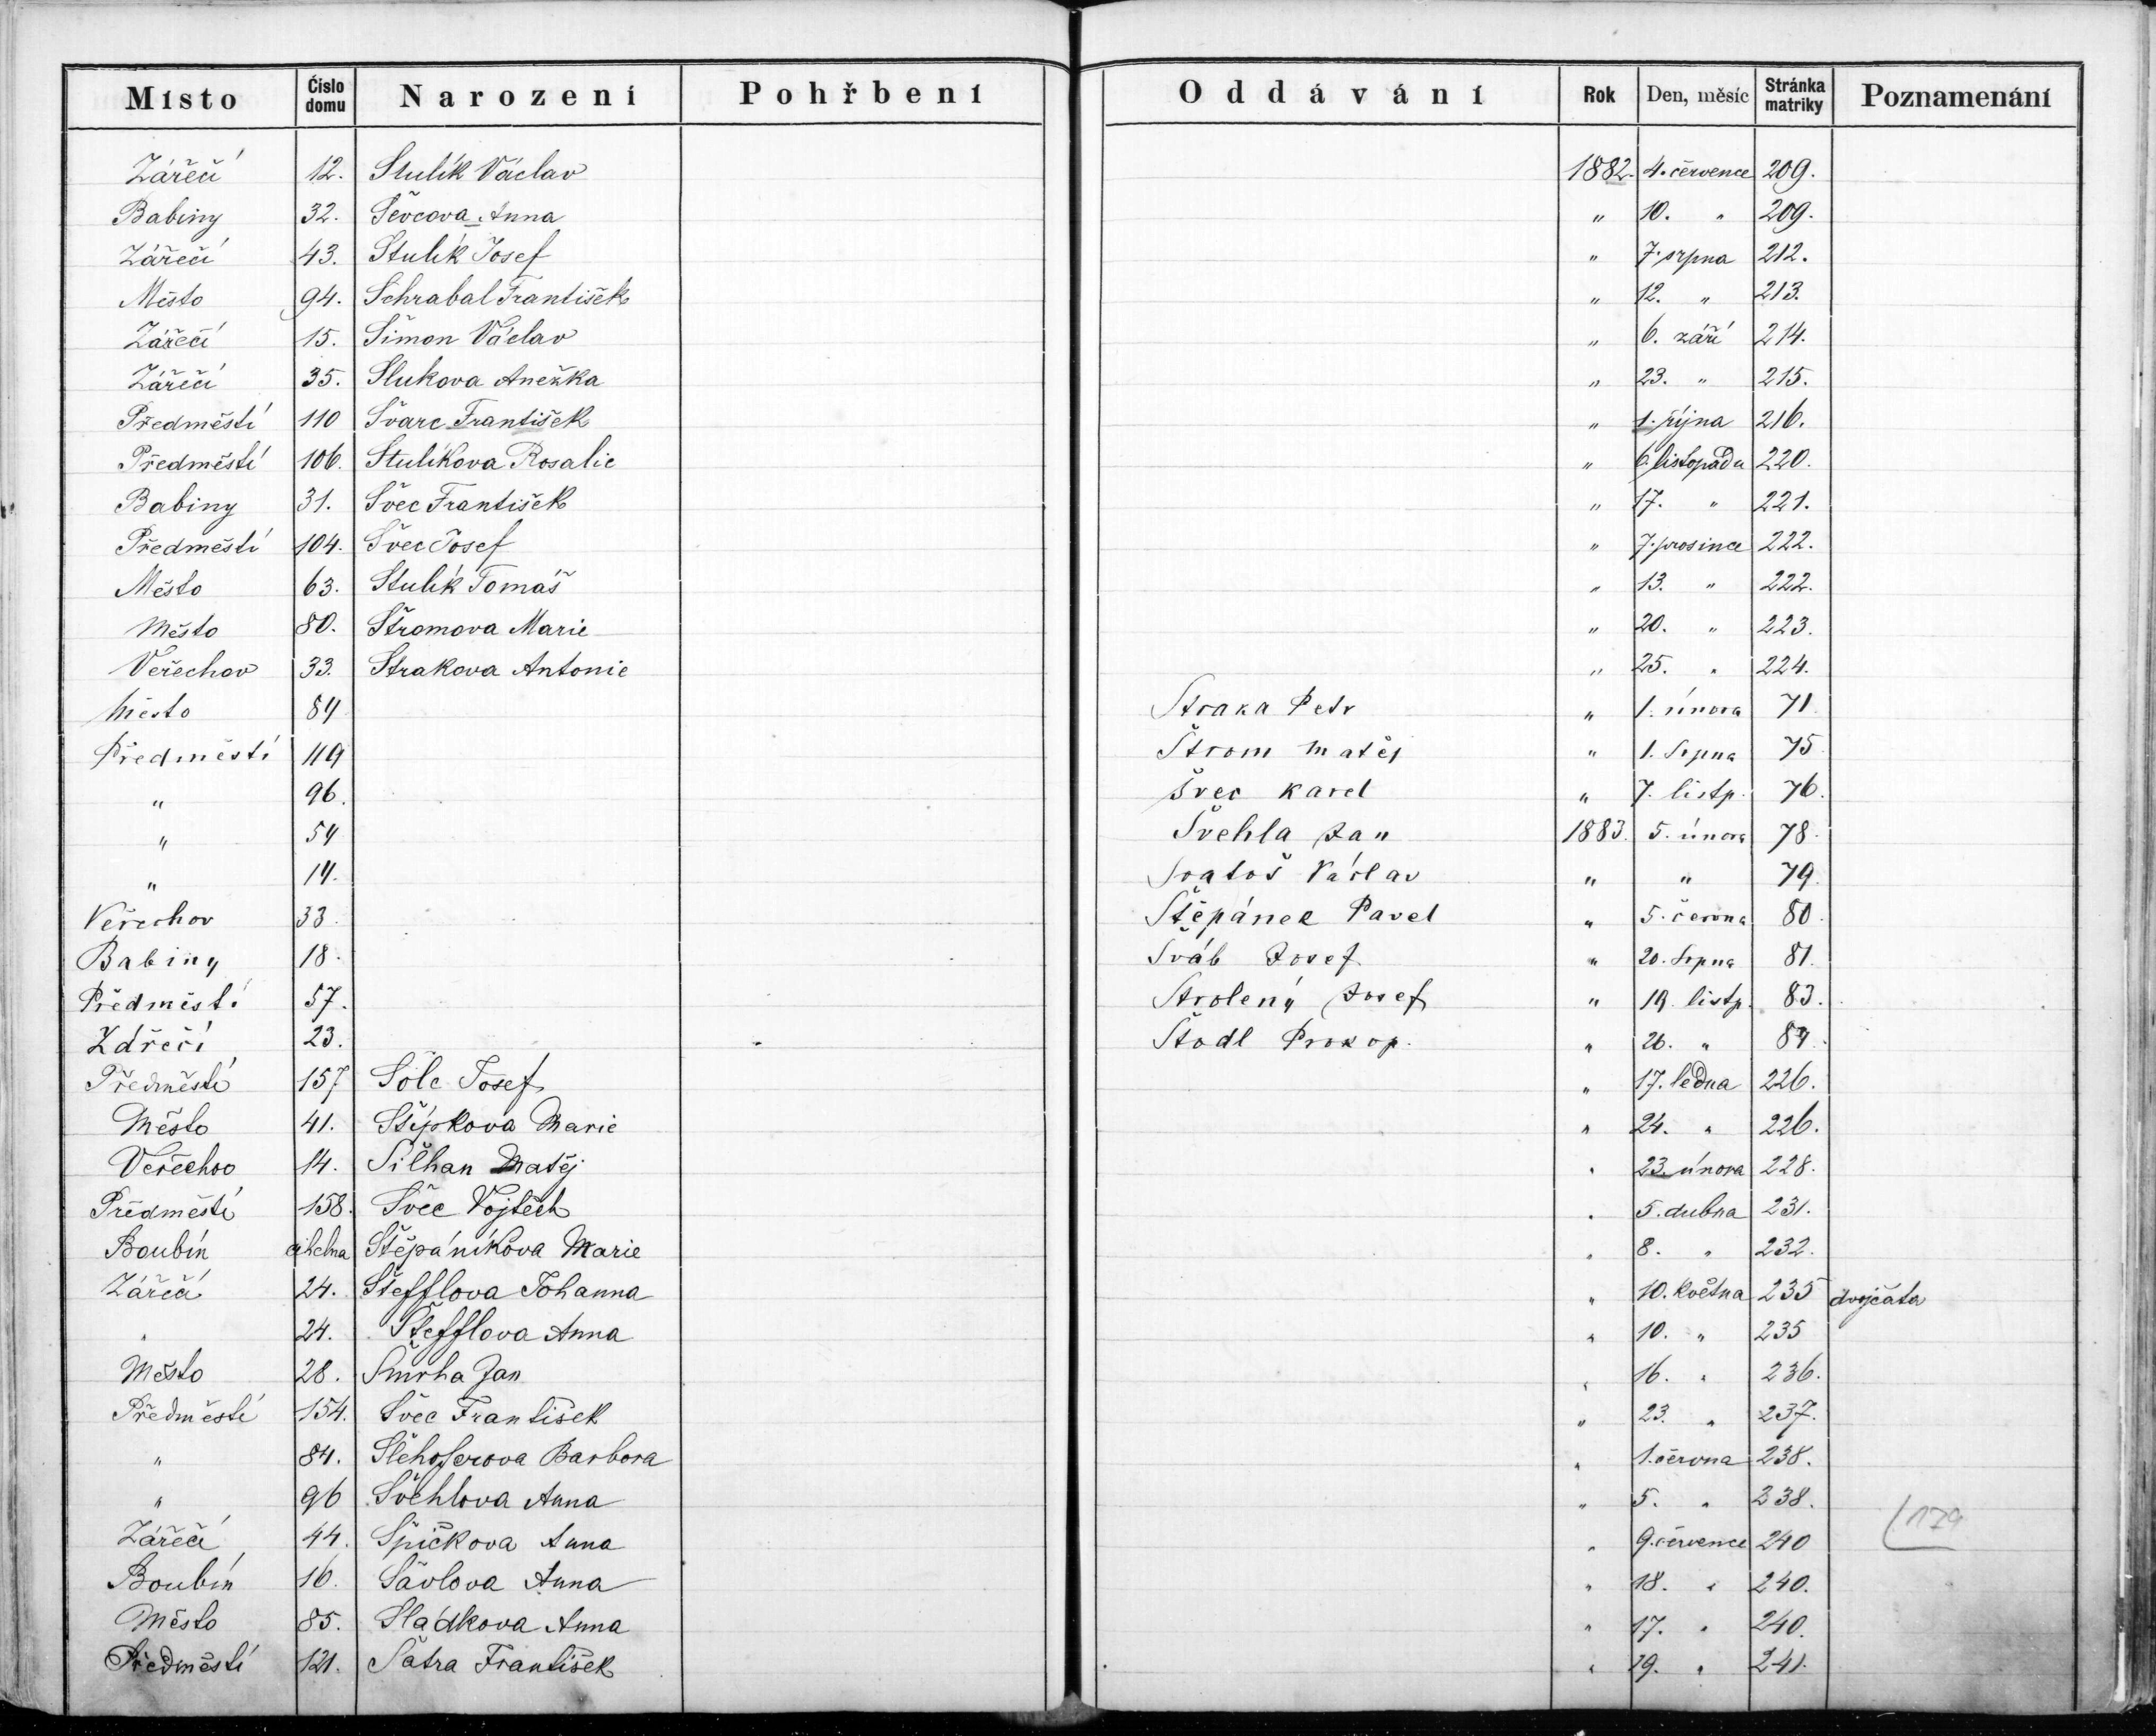 Místo Číslo domu Narození Pohřbení Oddávání Rok Den, měsíc Stránka matriky Poznamenání
Zářečí 12. Stulík Václav 1882. 4. července 209.
Babiny 32. Ševcova Anna " 10. " 209.
Zářečí 43. Stulík Josef " 7. srpna 212.
Město 94. Schrabal František " 12. " 213.
Zářečí 15. Šimon Václav " 6. září 214.
Zářečí 35. Slukova Anežka " 23. " 215.
Předměstí 110 Švarc František " 1. října 216.
Předměstí 106. Stulíkova Rosalie " 6. listopadu 220.
Babiny 31. Švec František " 17. " 221.
Předměstí 104. Švec Josef " 7. prosince 222.
Město 63. Stulík Tomáš " 13. " 222.
Město 80. Štromova Marie " 20. " 223.
Veřechov 33. Strakova Antonie " 25. " 224.
Město 84 Straka Petr " 1. února 71
Předměstí 119 Štrom Matěj " 1. Srpna 75
" 96. Švec Karel " 7. listp. 76.
" 54 Švehla Jan 1883. 5. února 78.
" 14. Svatoš Václav " " 79.
Veřechov 33. Štěpánek Pavel " 5. června 80.
Babiny 18. Šváb Josef " 20. Srpna 81.
Předměstí 57. Strolený Josef " 19. listp. 83.
Zářečí 23. Štodl Prokop. " 26. " 84.
Předměstí 157 Šolc Josef " 17. ledna 226.
Město 41. Štípkova Marie " 24. " 226.
Veřechov 14. Šilhan Matěj " 23. února 228.
Předměstí 158. Švec Vojtěch " 5. dubna 231.
Boubín cihelna Štěpáníkova Marie " 8. " 232.
Zářečí 24. Štefflova Johanna " 10. května 235 dvojčata
" 24. Štefflova Anna " 10. " 235
Město 28. Šmrha Jan " 16. " 236.
Předměstí 154. Švec František " 23. " 237.
" 84. Barbora " 1. června 238.
" 96 Švehlova Anna " 5. " 238.
Zářečí 44. Špičkova Anna " 9. července 240
179
Boubín 16. Šavlova Anna " 18. " 240.
Město 85. Sládkova Anna " 17. " 240.
Předměstí 121. Šatra František " 19. " 241.